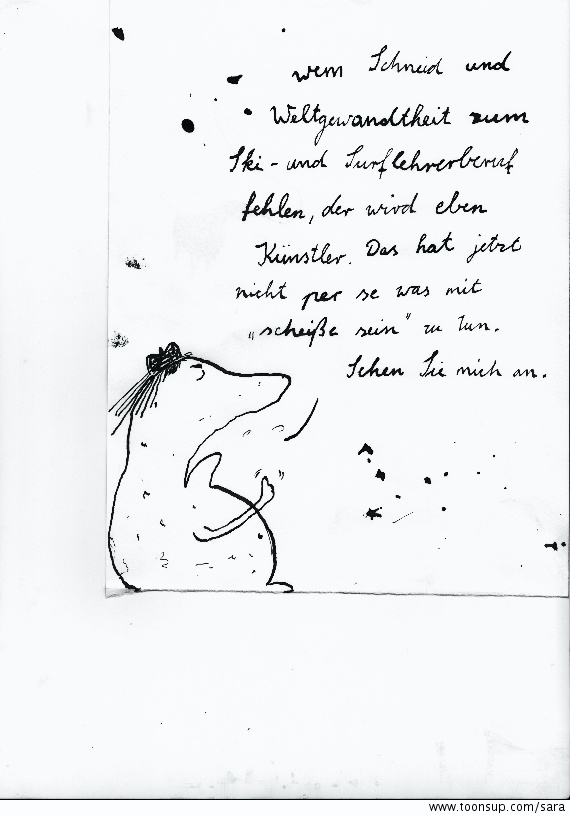 wem Schneid und
Weltgewandtheit zum
Ski- und Surflehrerberuf
fehlen, der wird eben
Künstler. Das hat jetzt
nicht per se was mit
„scheiße sein" zu tun.
Sehen Sie mich an.
www.toonsup.com/sara